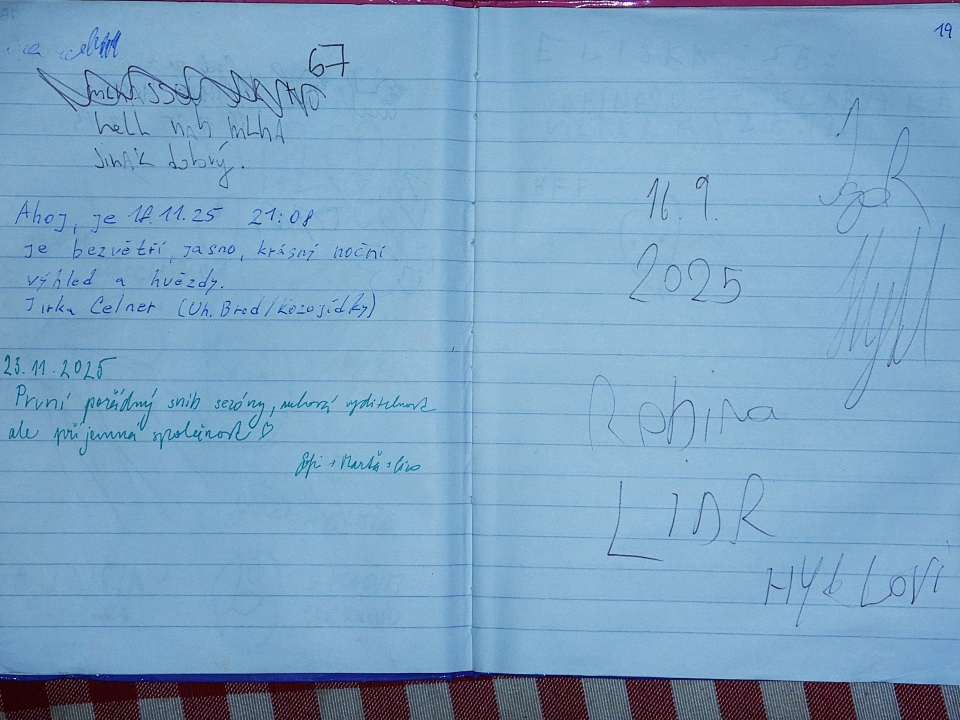 67
mLhA
JinAk dobrý.
Ahoj, je 18.11.25 21:08
je bezvětří, jasno, krásný noční
výhled a hvězdy.
Jirka Celner (Uh. Brod/Kozojídky)
23.11.2025
První pořádný sníh sezóny, nulová vyditelnost
ale příjemná společnost ♡
19
16.9.
2025
Rohina
LIDR
HYbLovi